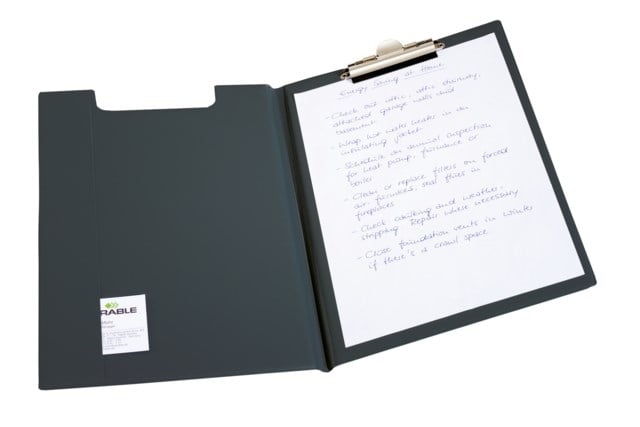 RABLE
Energy Saving at Home
- Check out attic, attic stairway,
attached garage walls and
basement
- Wrap hot water heater in an
insulating jacket
- Schedule an annual inspection
for heat pump, furnance or
boiler
- Clean or replace filters on forced
air furnaces, seal flues in
fireplaces
- Check caulking and weather-
stripping. Repair where necessary
- Close foundation vents in winter
if there's a crawl space